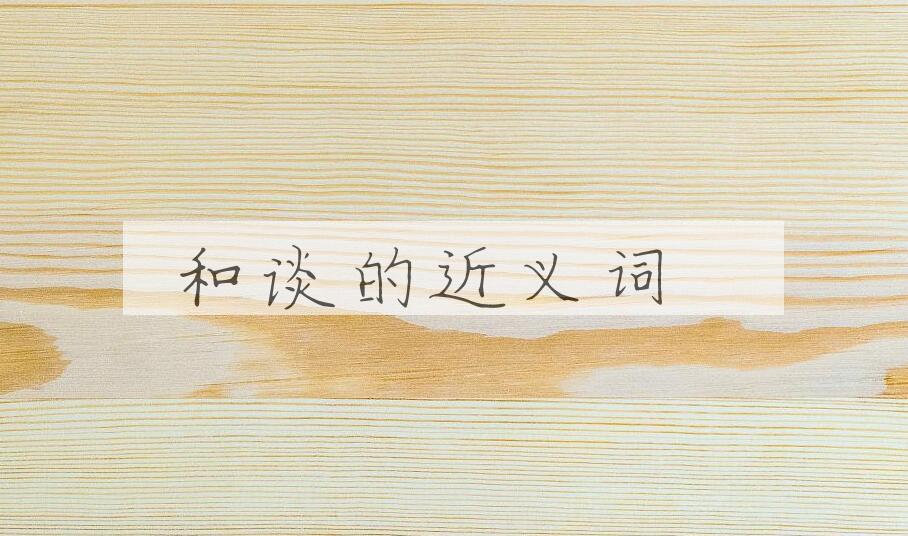 和谈的近义词